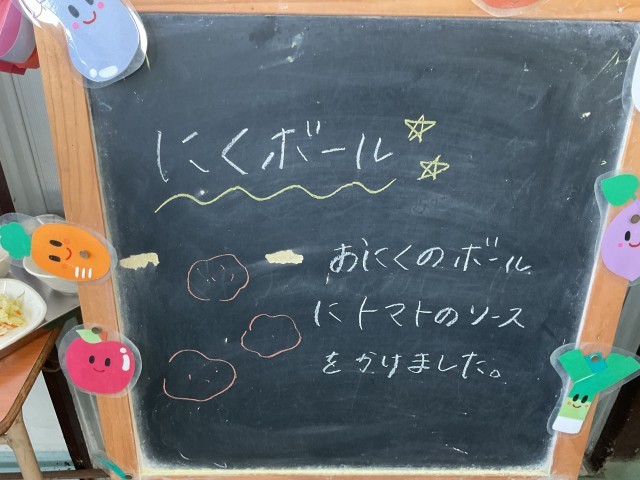 にくボール
おにくのボール
にトマトのソース
をかけました。